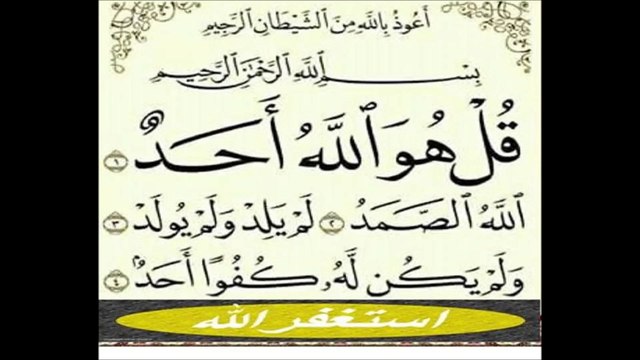 أَعُوذُ بِاللَّهِ مِنَ ٱلشَّيْطَانِ ٱلرَّجِيمِ
بِسْمِ ٱللَّهِ ٱلرَّحْمَٰنِ ٱلرَّحِيمِ
قُلْ هُوَ ٱللَّهُ أَحَدٌ ١
ٱللَّهُ ٱلصَّمَدُ ٢ لَمْ يَلِدْ وَلَمْ يُولَدْ ٣
وَلَمْ يَكُن لَّهُۥ كُفُوًا أَحَدٌۢ ٤
استغفر الله